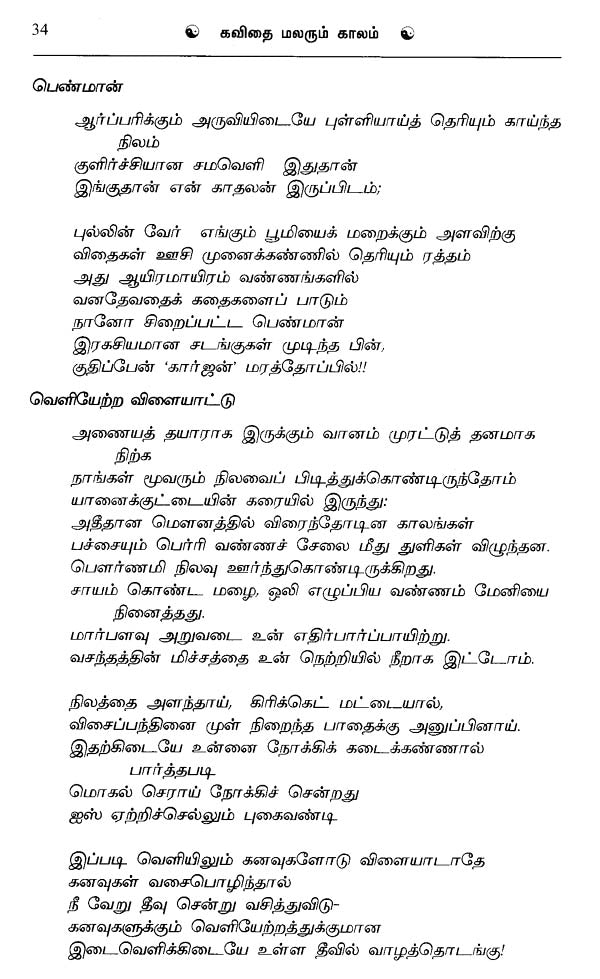 34 கவிதை மலரும் காலம்
பெண்மான்
ஆர்ப்பரிக்கும் அருவியிடையே புள்ளியாய்த் தெரியும் காய்ந்த
நிலம்
குளிர்ச்சியான சமவெளி இதுதான்
இங்குதான் என் காதலன் இருப்பிடம்;
புல்லின் வேர் எங்கும் பூமியைக் மறைக்கும் அளவிற்கு
விதைகள் ஊசி முனைக்கண்ணில் தெரியும் ரத்தம்
அது ஆயிரமாயிரம் வண்ணங்களில்
வனதேவதைக் கதைகளைப் பாடும்
நானோ சிறைப்பட்ட பெண்மான்
இரகசியமான சடங்குகள் முடிந்த பின்,
குதிப்பேன் 'கார்ஜன்' மரத்தோப்பில்!!
வெளியேற்ற விளையாட்டு
அணையத் தயாராக இருக்கும் வானம் முரட்டுத் தனமாக
நிற்க
நாங்கள் மூவரும் நிலவைப் பிடித்துக்கொண்டிருந்தோம்
யானைக்குட்டையின் கரையில் இருந்து:
அதீதான மௌனத்தில் விரைந்தோடின காலங்கள்
பச்சையும் பெர்ரி வண்ணச் சேலை மீது துளிகள் விழுந்தன.
பௌர்ணமி நிலவு ஊர்ந்துகொண்டிருக்கிறது.
சாயம் கொண்ட மழை, ஒலி எழுப்பிய வண்ணம் மேனியை
நினைத்தது.
மார்பளவு அறுவடை உன் எதிர்பார்ப்பாயிற்று.
வசந்தத்தின் மிச்சத்தை உன் நெற்றியில் நீறாக இட்டோம்.
நிலத்தை அளந்தாய், கிரிக்கெட் மட்டையால்,
விசைப்பந்தினை முள் நிறைந்த பாதைக்கு அனுப்பினாய்.
இதற்கிடையே உன்னை நோக்கிக் கடைக்கண்ணால்
பார்த்தபடி
மொகல் செராய் நோக்கிச் சென்றது
ஐஸ் ஏற்றிச்செல்லும் புகைவண்டி
இப்படி வெளியிலும் கனவுகளோடு விளையாடாதே
கனவுகள் வசைபொழிந்தால்
நீ வேறு தீவு சென்று வசித்துவிடு-
கனவுகளுக்கும் வெளியேற்றத்துக்குமான
இடைவெளிக்கிடையே உள்ள தீவில் வாழத்தொடங்கு!